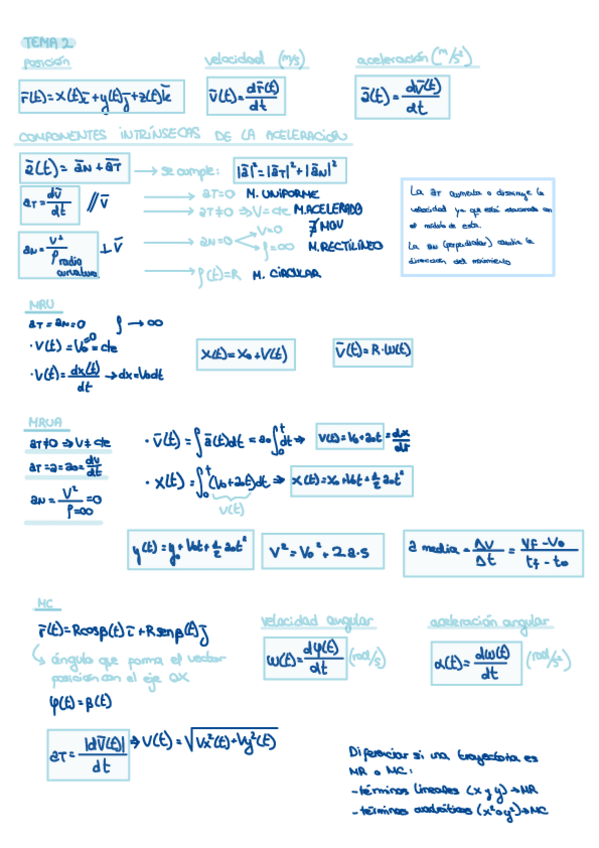 TEMA 2
posición velocidad (m/s) aceleración (m/s²)
r̄(t)=x(t)ī+y(t)j̄+z(t)k̄ v̄(t)=dr̄(t)/dt ā(t)=dv̄(t)/dt
COMPONENTES INTRÍNSECAS DE LA ACELERACION
ā(t)=āN+āT → se cumple: |ā|²=|āT|²+|āN|²
aT=dv̄/dt // v̄
→ aT=0 M. UNIFORME
→ aT≠0 ⇒ V=cte M. ACELERADO
aN=V²/ρ radio curvatura ⊥ v̄
→ aN=0 V=0 ∄ MOV
ρ=∞ M. RECTILÍNEO
→ ρ(t)=R M. CIRCULAR
La aT aumenta o disminuye la
velocidad ya que está relacionada con
el módulo de esta.
La aN (perpendicular) cambia la
dirección del movimiento
MRU
aT=aN=0 ρ→∞
·V(t)=V₀=cte
·V(t)=dx(t)/dt → dx=V₀dt
x(t)=x₀+V(t) v̄(t)=R·ω(t)
MRUA
aT≠0 ⇒ V≠cte
aT=a=a₀=dv/dt
aN=V²/ρ=∞ =0
· v̄(t)=∫ā(t)dt=a₀∫₀ᵗdt ⇒ v(t)=V₀+a₀t=dx/dt
· x(t)=∫₀ᵗ(V₀+a₀t)dt ⇒ x(t)=x₀+V₀t+½a₀t²
V(t)
y(t)=y₀+V₀t+½a₀t² V²=V₀²+2a·s a media=ΔV/Δt=VF-V₀/tf-t₀
MC
r̄(t)=Rcosβ(t)ī+Rsenβ(t)j̄
ángulo que forma el vector
posición con el eje OX
φ(t)=β(t)
velocidad angular
ω(t)=dφ(t)/dt (rad/s)
aceleración angular
α(t)=dω(t)/dt (rad/s²)
aT=|dv̄(t)|/dt → V(t)=√Vx²(t)+Vy²(t)
Diferenciar si una trayectoria es
MR o MC:
-términos lineales (x y y)→MR
-términos cuadráticos (x² o y²)→MC